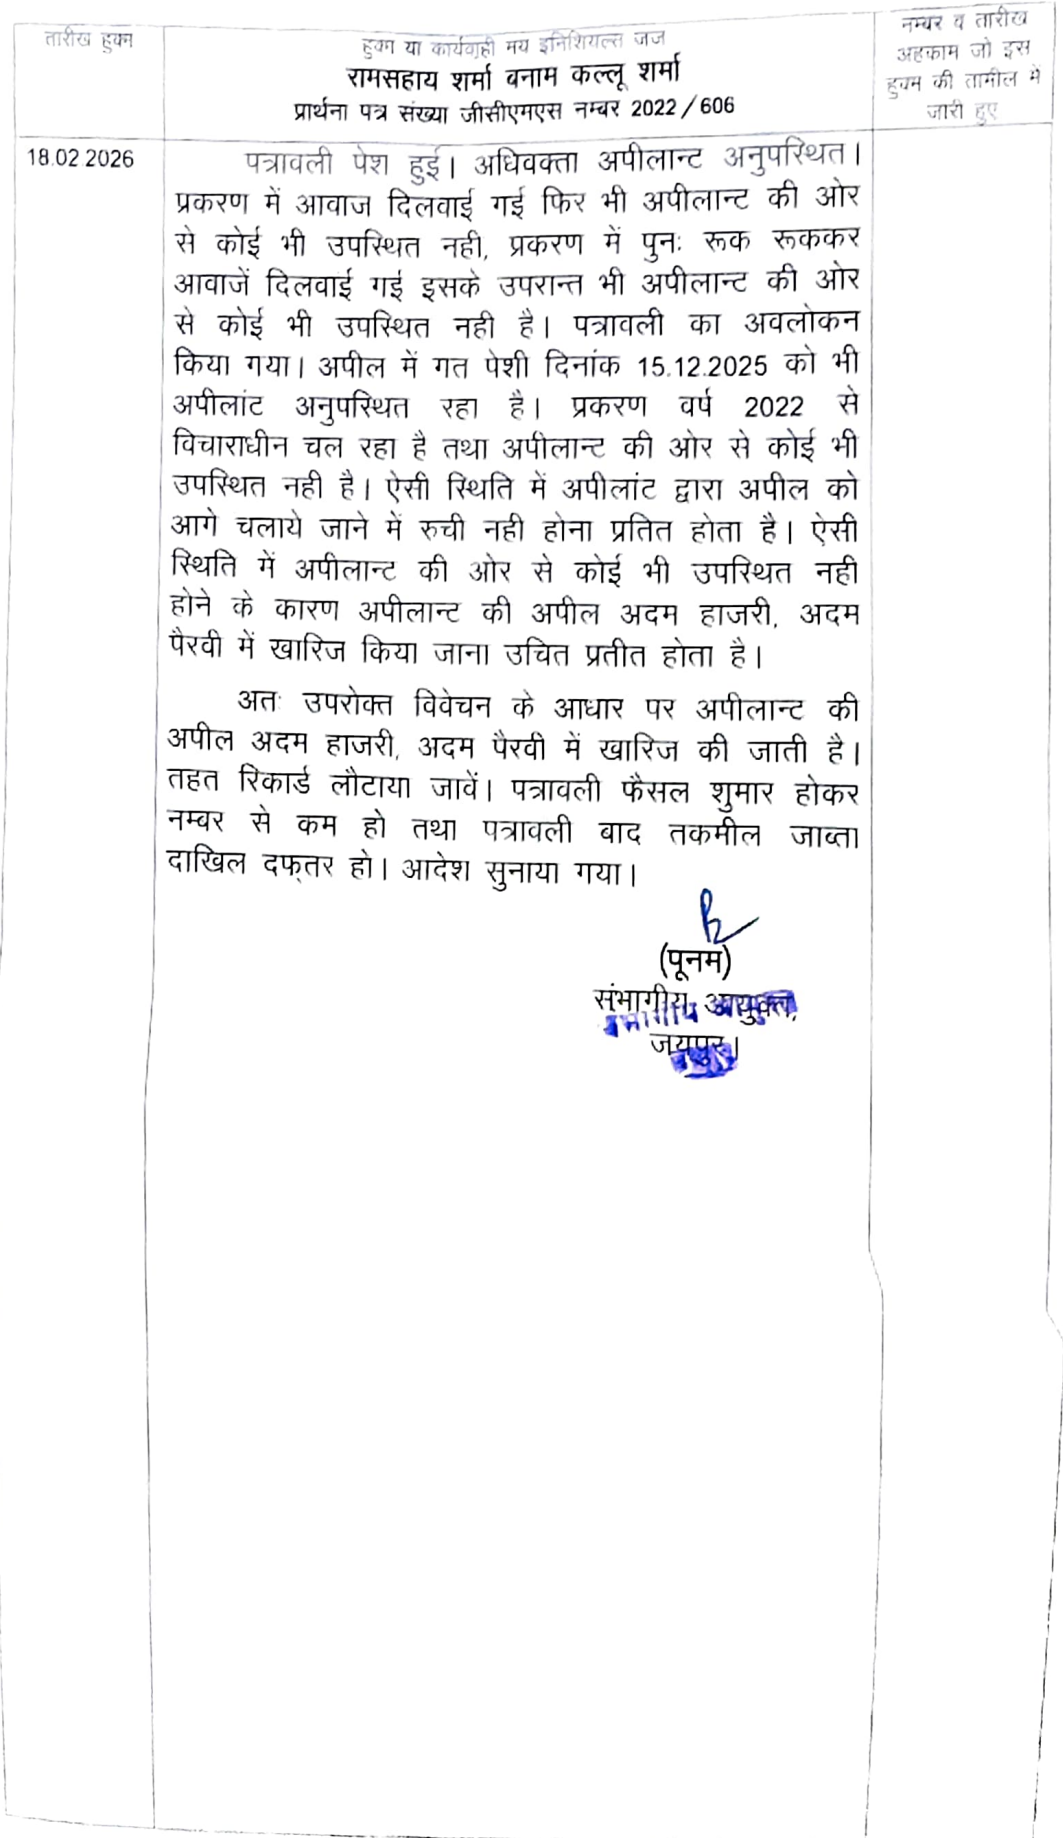 तारीख हुक्म
हुक्म या कार्यवाही मय इनिशियल्स जज
रामसहाय शर्मा बनाम कल्लू शर्मा
प्रार्थना पत्र संख्या जीसीएमएस नम्बर 2022/606
नम्बर व तारीख
अहकाम जो इस
हुक्म की तामील में
जारी हुए
18.02.2026
पत्रावली पेश हुई। अधिवक्ता अपीलान्ट अनुपस्थित।
प्रकरण में आवाज दिलवाई गई फिर भी अपीलान्ट की ओर
से कोई भी उपस्थित नही, प्रकरण में पुनः रूक रूककर
आवाजें दिलवाई गई इसके उपरान्त भी अपीलान्ट की ओर
से कोई भी उपस्थित नही है। पत्रावली का अवलोकन
किया गया। अपील में गत पेशी दिनांक 15.12.2025 को भी
अपीलांट अनुपस्थित रहा है। प्रकरण वर्ष 2022 से
विचाराधीन चल रहा है तथा अपीलान्ट की ओर से कोई भी
उपस्थित नही है। ऐसी स्थिति में अपीलांट द्वारा अपील को
आगे चलाये जाने में रुची नही होना प्रतित होता है। ऐसी
स्थिति में अपीलान्ट की ओर से कोई भी उपस्थित नही
होने के कारण अपीलान्ट की अपील अदम हाजरी, अदम
पैरवी में खारिज किया जाना उचित प्रतीत होता है।
अतः उपरोक्त विवेचन के आधार पर अपीलान्ट की
अपील अदम हाजरी, अदम पैरवी में खारिज की जाती है।
तहत रिकार्ड लौटाया जावें। पत्रावली फैसल शुमार होकर
नम्बर से कम हो तथा पत्रावली बाद तकमील जाब्ता
दाखिल दफ्तर हो। आदेश सुनाया गया।
(पूनम)
संभागीय आयुक्त,
जयपुर।